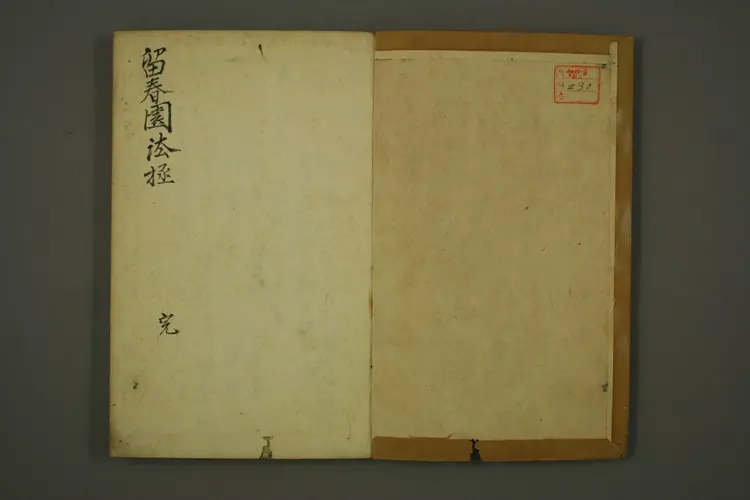 留春園法極
完
231